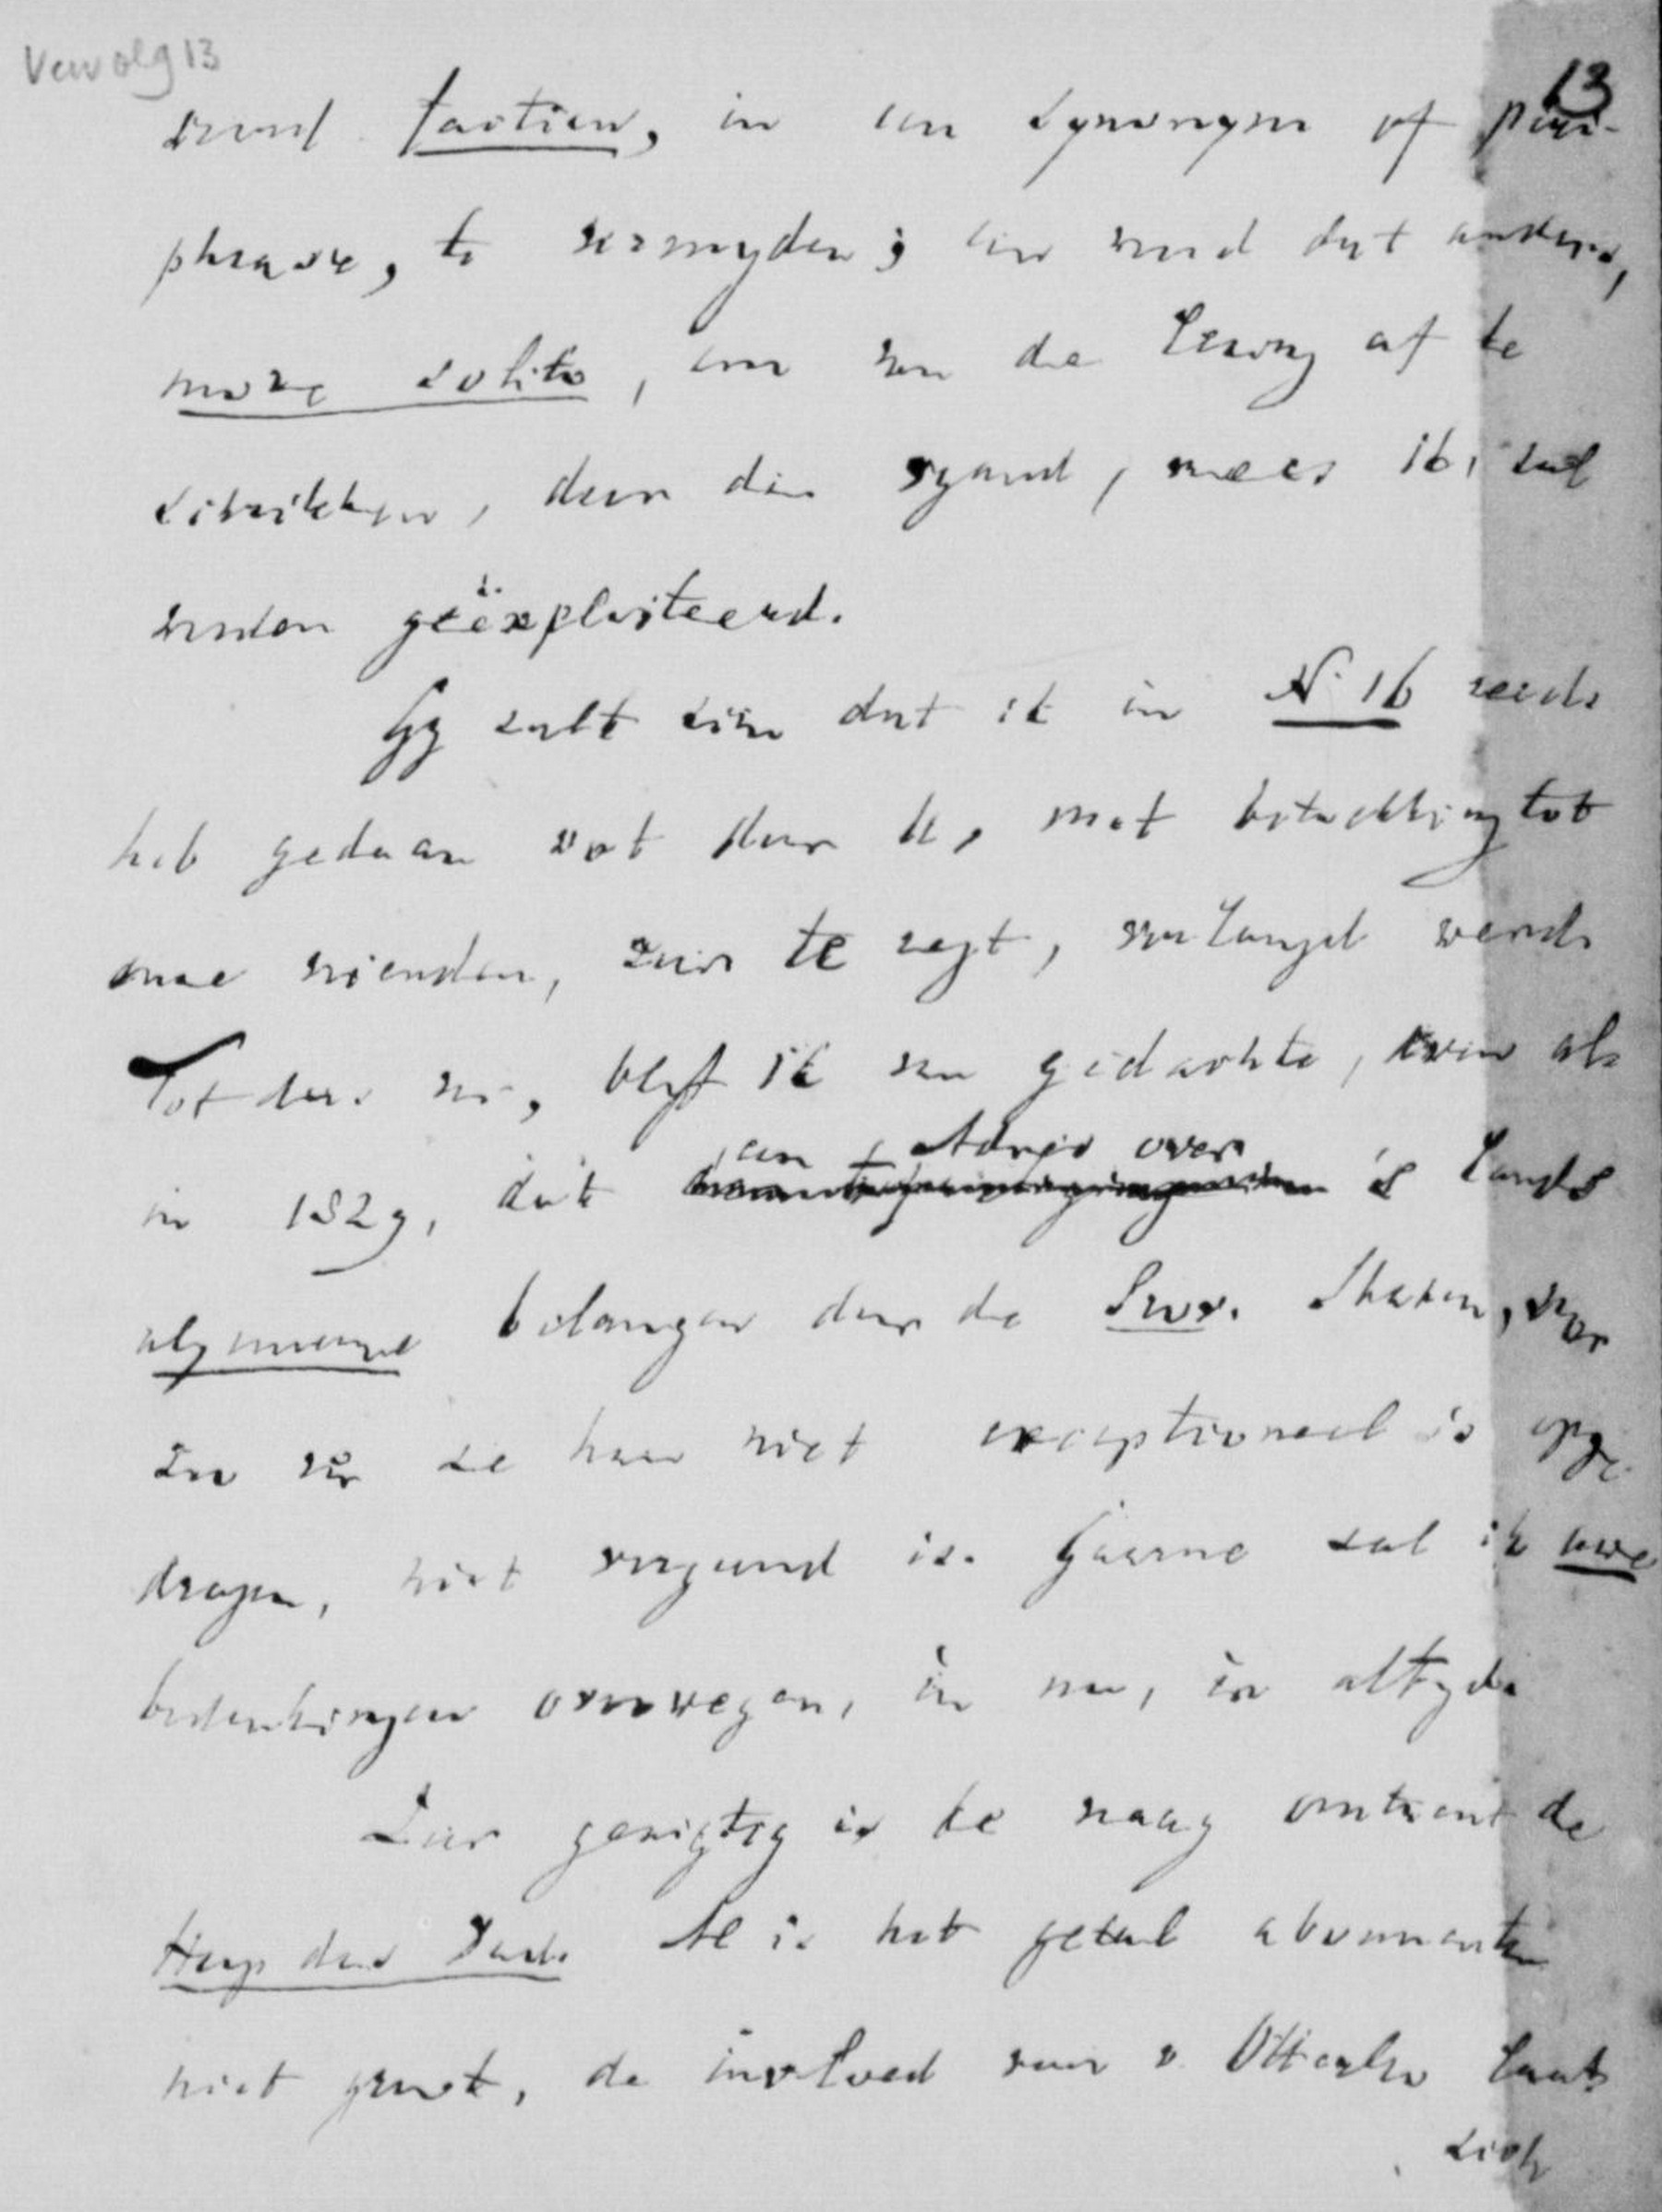 Vervolg 13
13
woord factien, in een synonym of peri-
phrase, te vermyden; een word dat anders,
more solito, om van de lezing af te
schrikken, door die vyand, mees ik, zal
worden geëxploiteerd.
Gy zult zien dat ik in N. 16 reeds
heb gedaan wat door U, met betrekking tot
onze vrienden, zeer te regt, verlangd werd.
Tot dus ver, blyf ik van gedachte, even als
in 1829, dat een Adres over 's Lands
algemeene belangen door de Prov. Staten, voor
zoo ver ze hun niet exceptioneel is opge-
dragen, niet vergund is. Gaarne zal ik uwe
bedenkingen overwegen, en nu, en altyd.
Zeer gewigtig is de vraag omtrent de
Hage. Al is het getal abonnenten
niet groot, de invloed van v. Otterloo laat
zich